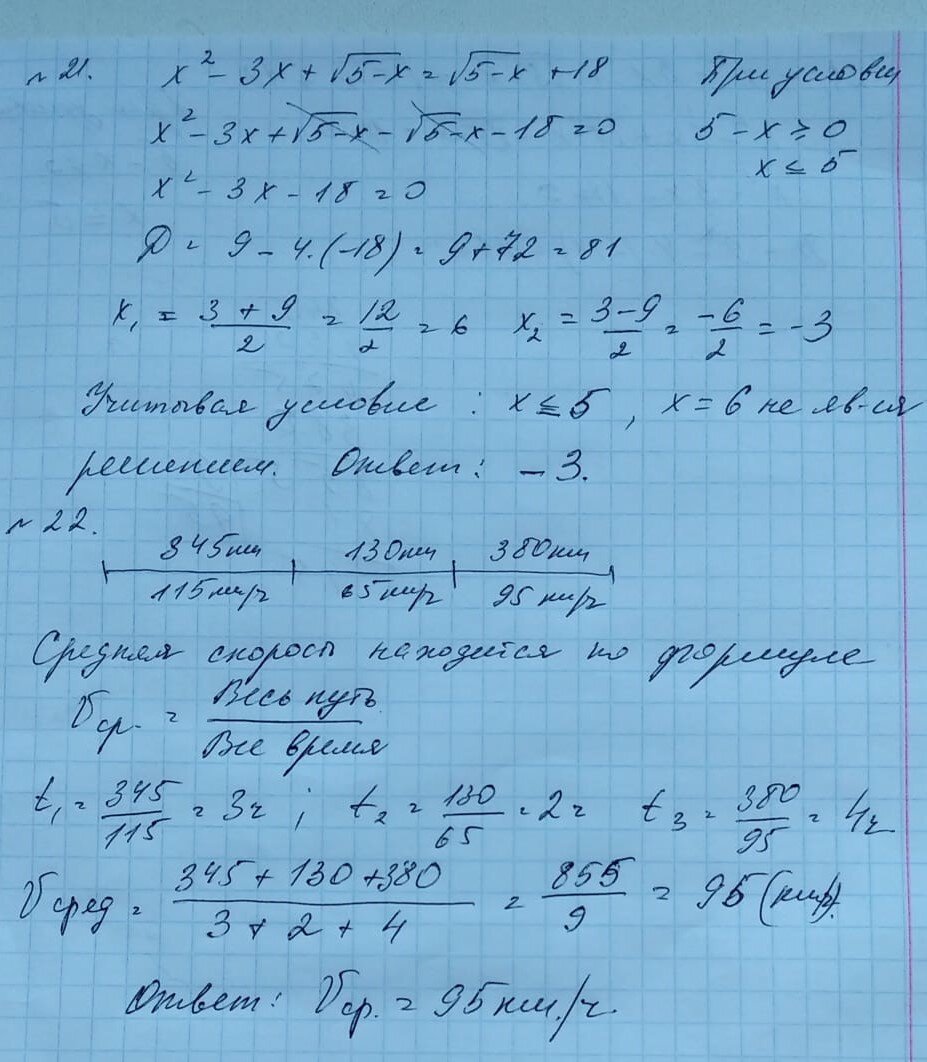 №21. x² - 3x + √5-x = √5-x + 18 При услови
x² - 3x + √5-x - √5-x - 18 = 0 5 - x ≥ 0
x² - 3x - 18 = 0 x ≤ 5
D = 9 - 4·(-18) = 9 + 72 = 81
x₁ = (3 + 9)/2 = 12/2 = 6 x₂ = (3-9)/2 = -6/2 = -3
Учитывая условие : x ≤ 5, x = 6 не яв-ся
решением. Ответ: -3.
№22.
345км 130км 380км
115км/ч 65км/ч 95км/ч
Средняя скорость находится по формуле
Vср. = Весь путь / Все время
t₁ = 345/115 = 3ч ; t₂ = 130/65 = 2ч t₃ = 380/95 = 4ч
Vсред = (345 + 130 + 380)/(3 + 2 + 4) = 855/9 = 95 (км/ч).
Ответ: Vср. = 95км./ч